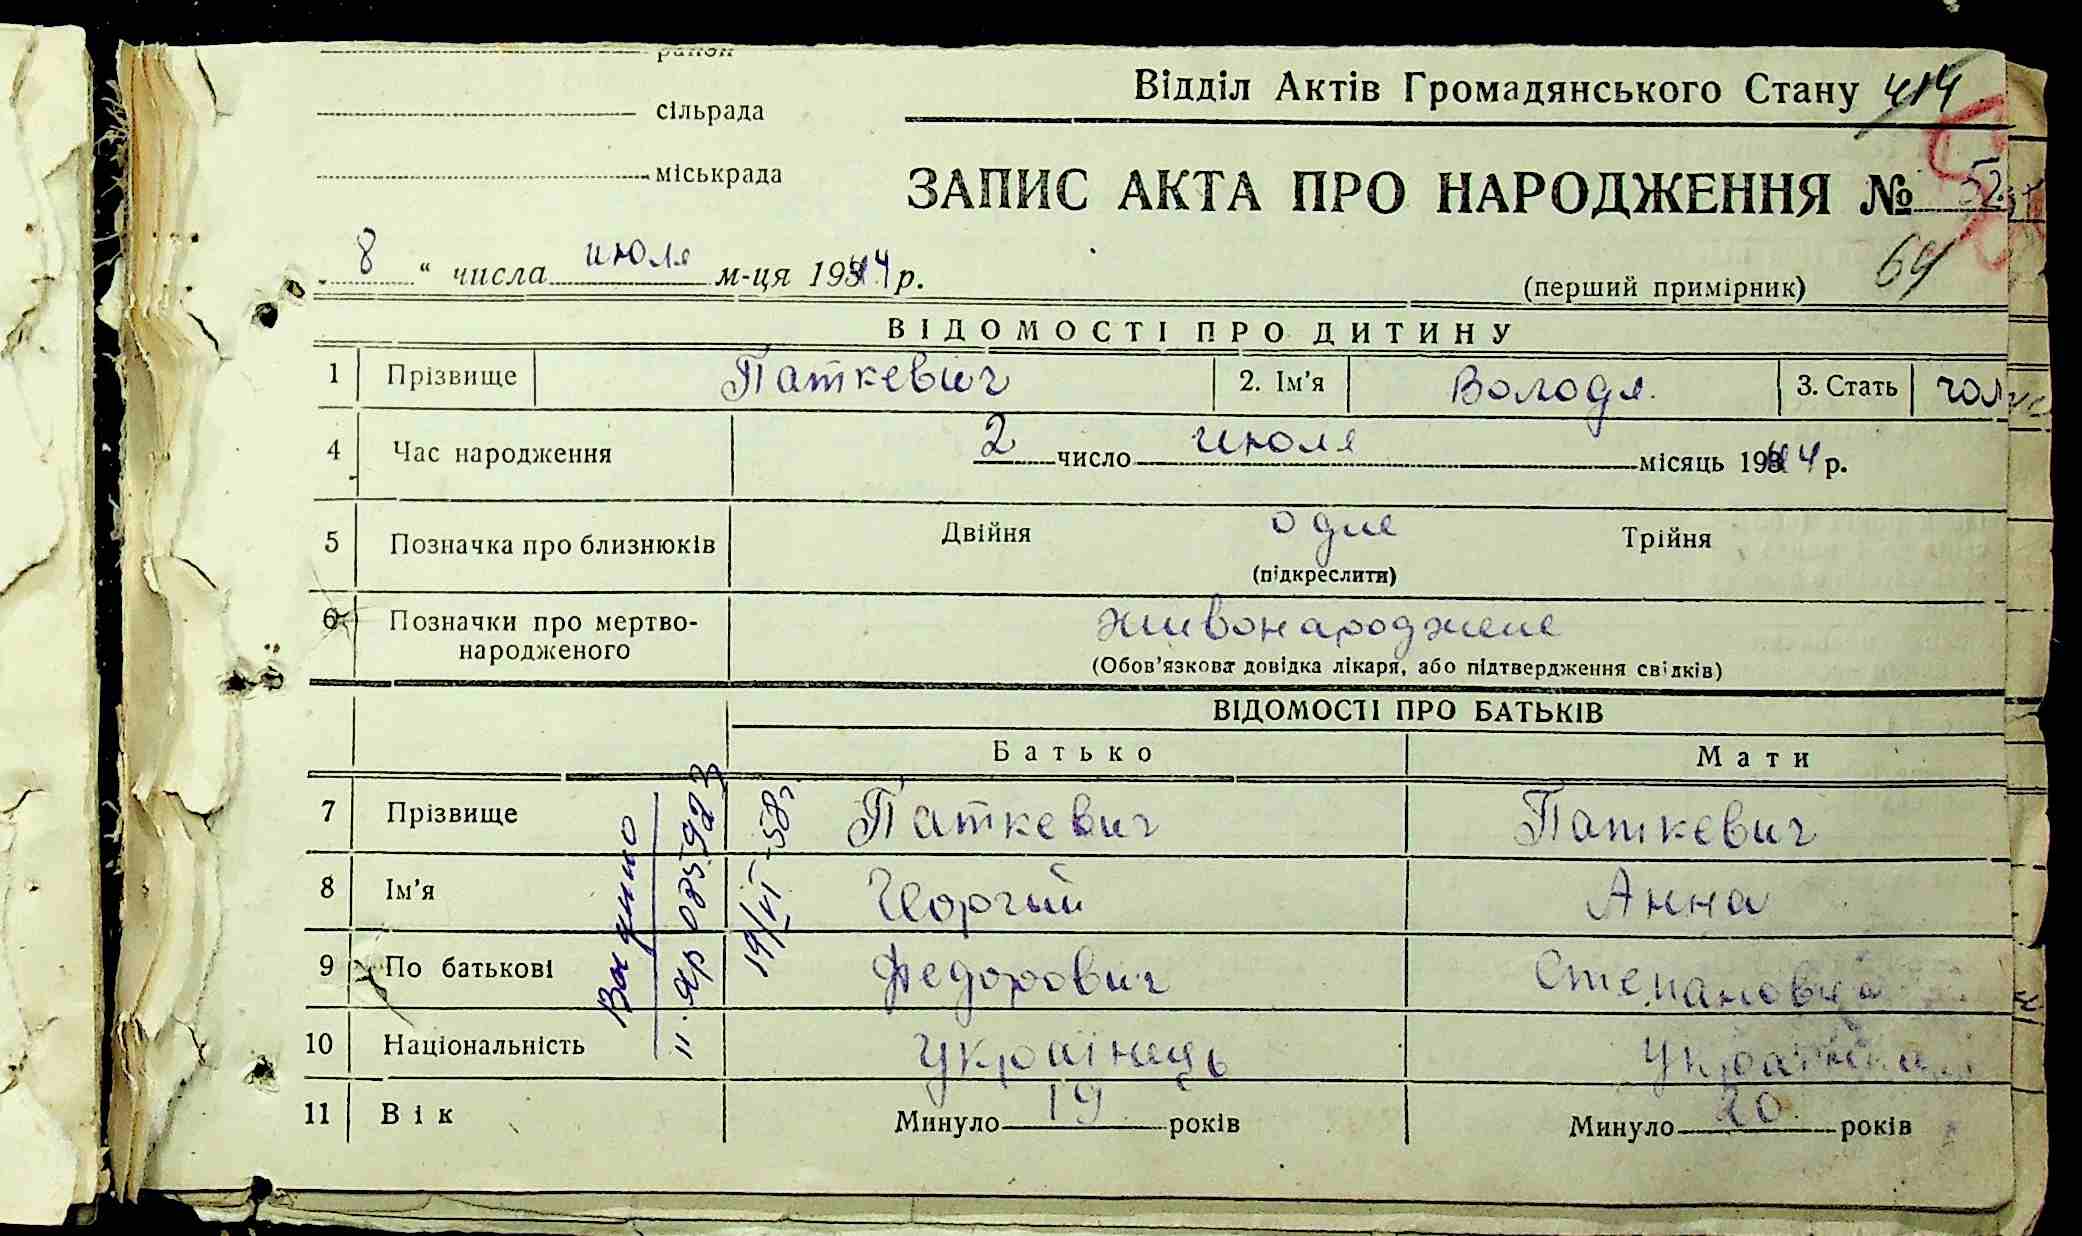 район
сільрада
міськрада
Відділ Актів Громадянського Стану 414
ЗАПИС АКТА ПРО НАРОДЖЕННЯ № 52
8 " числа июля м-ця 1944 р.
(перший примірник) 64
ВІДОМОСТІ ПРО ДИТИНУ
1 Прізвище Паткевич 2. Ім'я Володя. 3. Стать чол
4 Час народження 2 число июля місяць 1944 р.
5 Позначка про близнюків Двійня одне Трійня
(підкреслити)
6 Позначки про мертво-
народженого живонароджене
(Обов'язкова довідка лікаря, або підтвердження свідків)
ВІДОМОСТІ ПРО БАТЬКІВ
Батько Мати
7 Прізвище Паткевич Паткевич
8 Ім'я Георгий Анна
9 По батькові Федорович Степановна
10 Національність Українець Українка
11 Вік Минуло 19 років Минуло 20 років
Выдано
19/VI-58г.